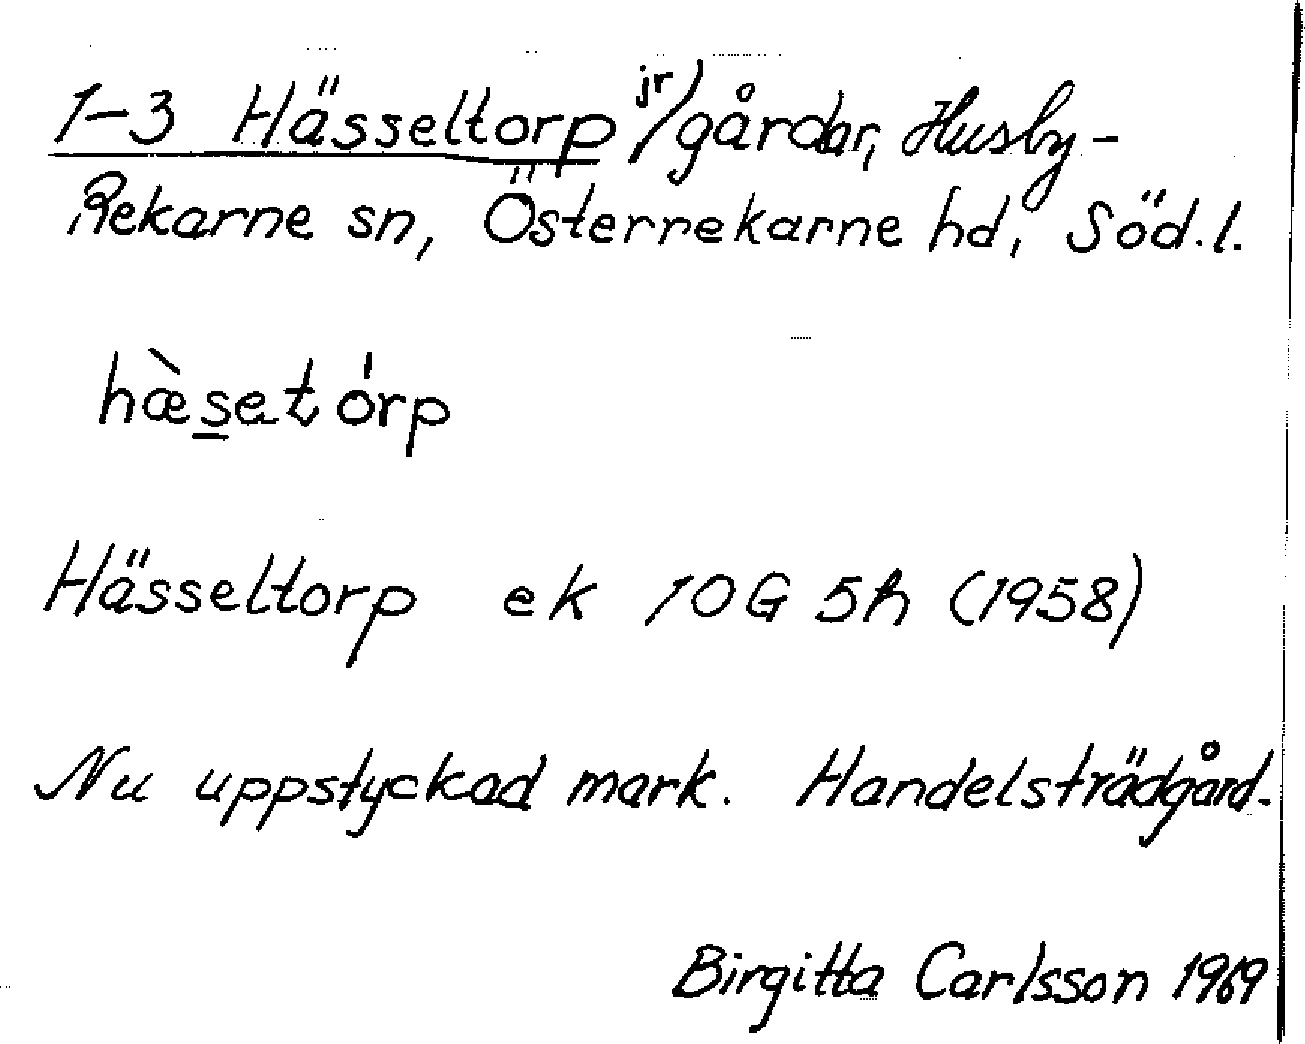 1-3 Hässeltorp jr/gårdar, Husby-
Rekarne sn, Österrekarne hd, Söd.l.
hæ̀s̲etórp
Hässeltorp ek 10G 5h (1958)
Nu uppstyckad mark. Handelsträdgård.
Birgitta Carlsson 1969